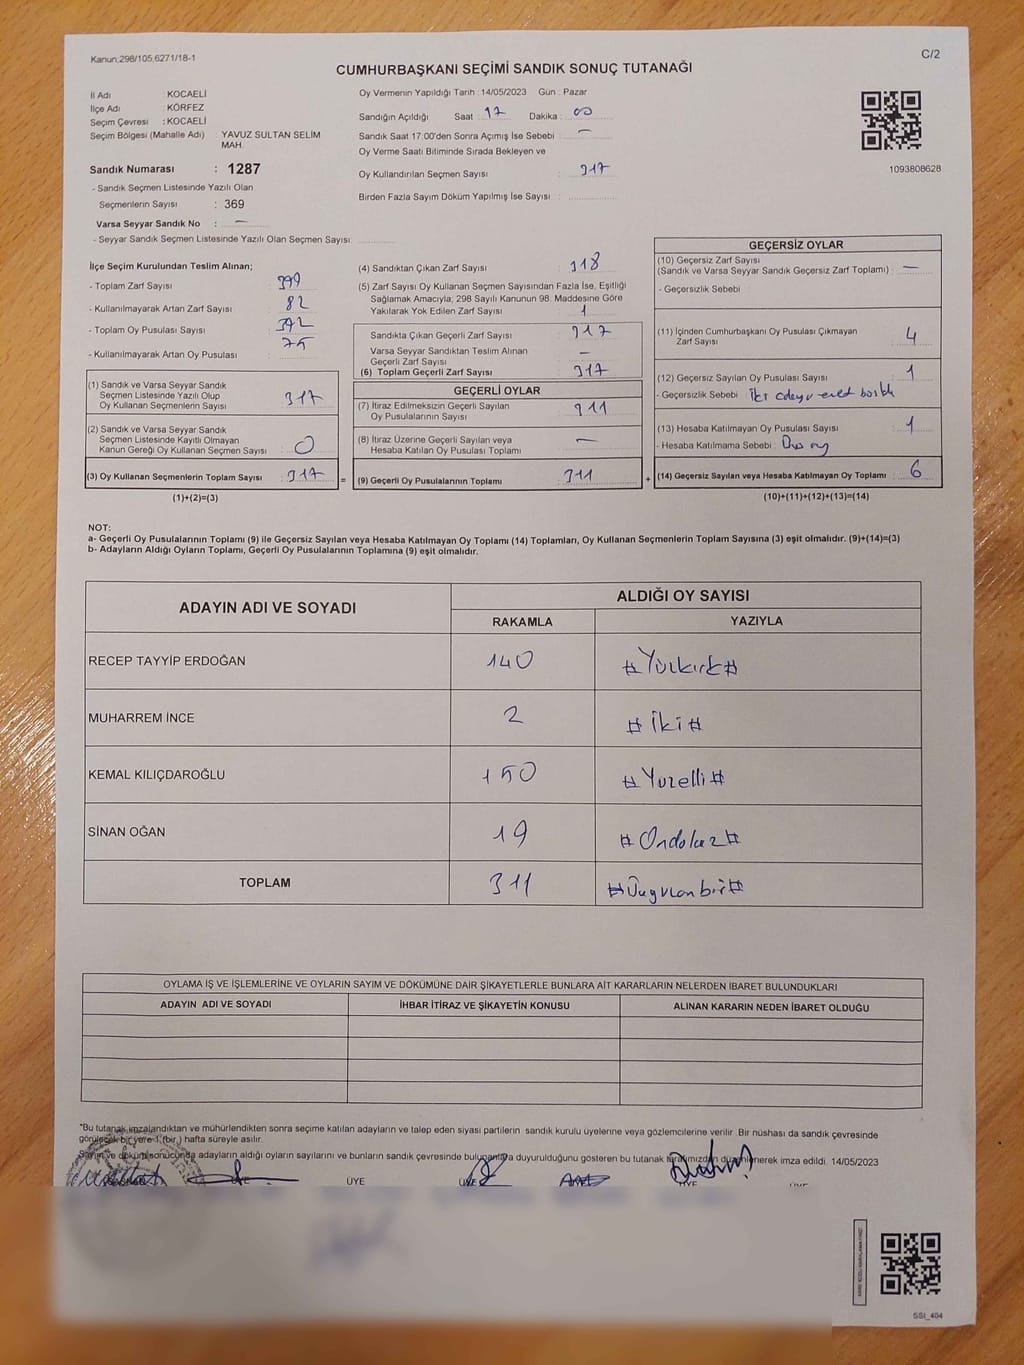 Kanun;298/105,6271/18-1
C/2
CUMHURBAŞKANI SEÇİMİ SANDIK SONUÇ TUTANAĞI
İl Adı : KOCAELİ
İlçe Adı : KÖRFEZ
Seçim Çevresi : KOCAELİ
Seçim Bölgesi (Mahalle Adı) : YAVUZ SULTAN SELİM
MAH.
Sandık Numarası : 1287
- Sandık Seçmen Listesinde Yazılı Olan
Seçmenlerin Sayısı : 369
Varsa Seyyar Sandık No : —
- Seyyar Sandık Seçmen Listesinde Yazılı Olan Seçmen Sayısı:
Oy Vermenin Yapıldığı Tarih : 14/05/2023 Gün : Pazar
Sandığın Açıldığı Saat : 17 Dakika : 00
Sandık Saat 17:00'den Sonra Açımış İse Sebebi : —
Oy Verme Saati Bitiminde Sırada Bekleyen ve
Oy Kullandırılan Seçmen Sayısı : 317
Birden Fazla Sayım Döküm Yapılmış İse Sayısı :
1093808628
İlçe Seçim Kurulundan Teslim Alınan;
- Toplam Zarf Sayısı : 399
- Kullanılmayarak Artan Zarf Sayısı : 82
- Toplam Oy Pusulası Sayısı : 392
- Kullanılmayarak Artan Oy Pusulası : 75
(1) Sandık ve Varsa Seyyar Sandık
Seçmen Listesinde Yazılı Olup
Oy Kullanan Seçmenlerin Sayısı : 317
(2) Sandık ve Varsa Seyyar Sandık
Seçmen Listesinde Kayıtlı Olmayan
Kanun Gereği Oy Kullanan Seçmen Sayısı : 0
(3) Oy Kullanan Seçmenlerin Toplam Sayısı : 317
(1)+(2)=(3)
(4) Sandıktan Çıkan Zarf Sayısı : 318
(5) Zarf Sayısı Oy Kullanan Seçmen Sayısından Fazla İse, Eşitliği
Sağlamak Amacıyla, 298 Sayılı Kanunun 98. Maddesine Göre
Yakılarak Yok Edilen Zarf Sayısı : 1
Sandıkta Çıkan Geçerli Zarf Sayısı : 317
Varsa Seyyar Sandıktan Teslim Alınan
Geçerli Zarf Sayısı : —
(6) Toplam Geçerli Zarf Sayısı : 317
GEÇERLİ OYLAR
(7) İtiraz Edilmeksizin Geçerli Sayılan
Oy Pusulalarının Sayısı : 311
(8) İtiraz Üzerine Geçerli Sayılan veya
Hesaba Katılan Oy Pusulası Toplamı : —
= (9) Geçerli Oy Pusulalarının Toplamı : 311
GEÇERSİZ OYLAR
(10) Geçersiz Zarf Sayısı
(Sandık ve Varsa Seyyar Sandık Geçersiz Zarf Toplamı) : —
- Geçersizlik Sebebi :
(11) İçinden Cumhurbaşkanı Oy Pusulası Çıkmayan
Zarf Sayısı : 4
(12) Geçersiz Sayılan Oy Pusulası Sayısı : 1
- Geçersizlik Sebebi : İki adaya evet
(13) Hesaba Katılmayan Oy Pusulası Sayısı : 1
- Hesaba Katılmama Sebebi : oy
+ (14) Geçersiz Sayılan veya Hesaba Katılmayan Oy Toplamı : 6
(10)+(11)+(12)+(13)=(14)
NOT:
a- Geçerli Oy Pusulalarının Toplamı (9) ile Geçersiz Sayılan veya Hesaba Katılmayan Oy Toplamı (14) Toplamları, Oy Kullanan Seçmenlerin Toplam Sayısına (3) eşit olmalıdır. (9)+(14)=(3)
b- Adayların Aldığı Oyların Toplamı, Geçerli Oy Pusulalarının Toplamına (9) eşit olmalıdır.
ADAYIN ADI VE SOYADI
ALDIĞI OY SAYISI
RAKAMLA YAZIYLA
RECEP TAYYİP ERDOĞAN 140 #Yüzkırk#
MUHARREM İNCE 2 #İki#
KEMAL KILIÇDAROĞLU 150 #Yüzelli#
SİNAN OĞAN 19 #Ondokuz#
TOPLAM 311 #Üçyüzonbir#
OYLAMA İŞ VE İŞLEMLERİNE VE OYLARIN SAYIM VE DÖKÜMÜNE DAİR ŞİKAYETLERLE BUNLARA AİT KARARLARIN NELERDEN İBARET BULUNDUKLARI
ADAYIN ADI VE SOYADI İHBAR İTİRAZ VE ŞİKAYETİN KONUSU ALINAN KARARIN NEDEN İBARET OLDUĞU
*Bu tutanak imzalandıktan ve mühürlendikten sonra seçime katılan adayların ve talep eden siyasi partilerin sandık kurulu üyelerine veya gözlemcilerine verilir. Bir nüshası da sandık çevresinde
görülecek bir yere 1 (bir) hafta süreyle asılır.
Sayım ve dökümü sonucunda adayların aldığı oyların sayılarını ve bunların sandık çevresinde bulunanlara duyurulduğunu gösteren bu tutanak tarafımızdan düzenlenerek imza edildi. 14/05/2023
ÜYE ÜYE ÜYE ÜYE
SSI_404